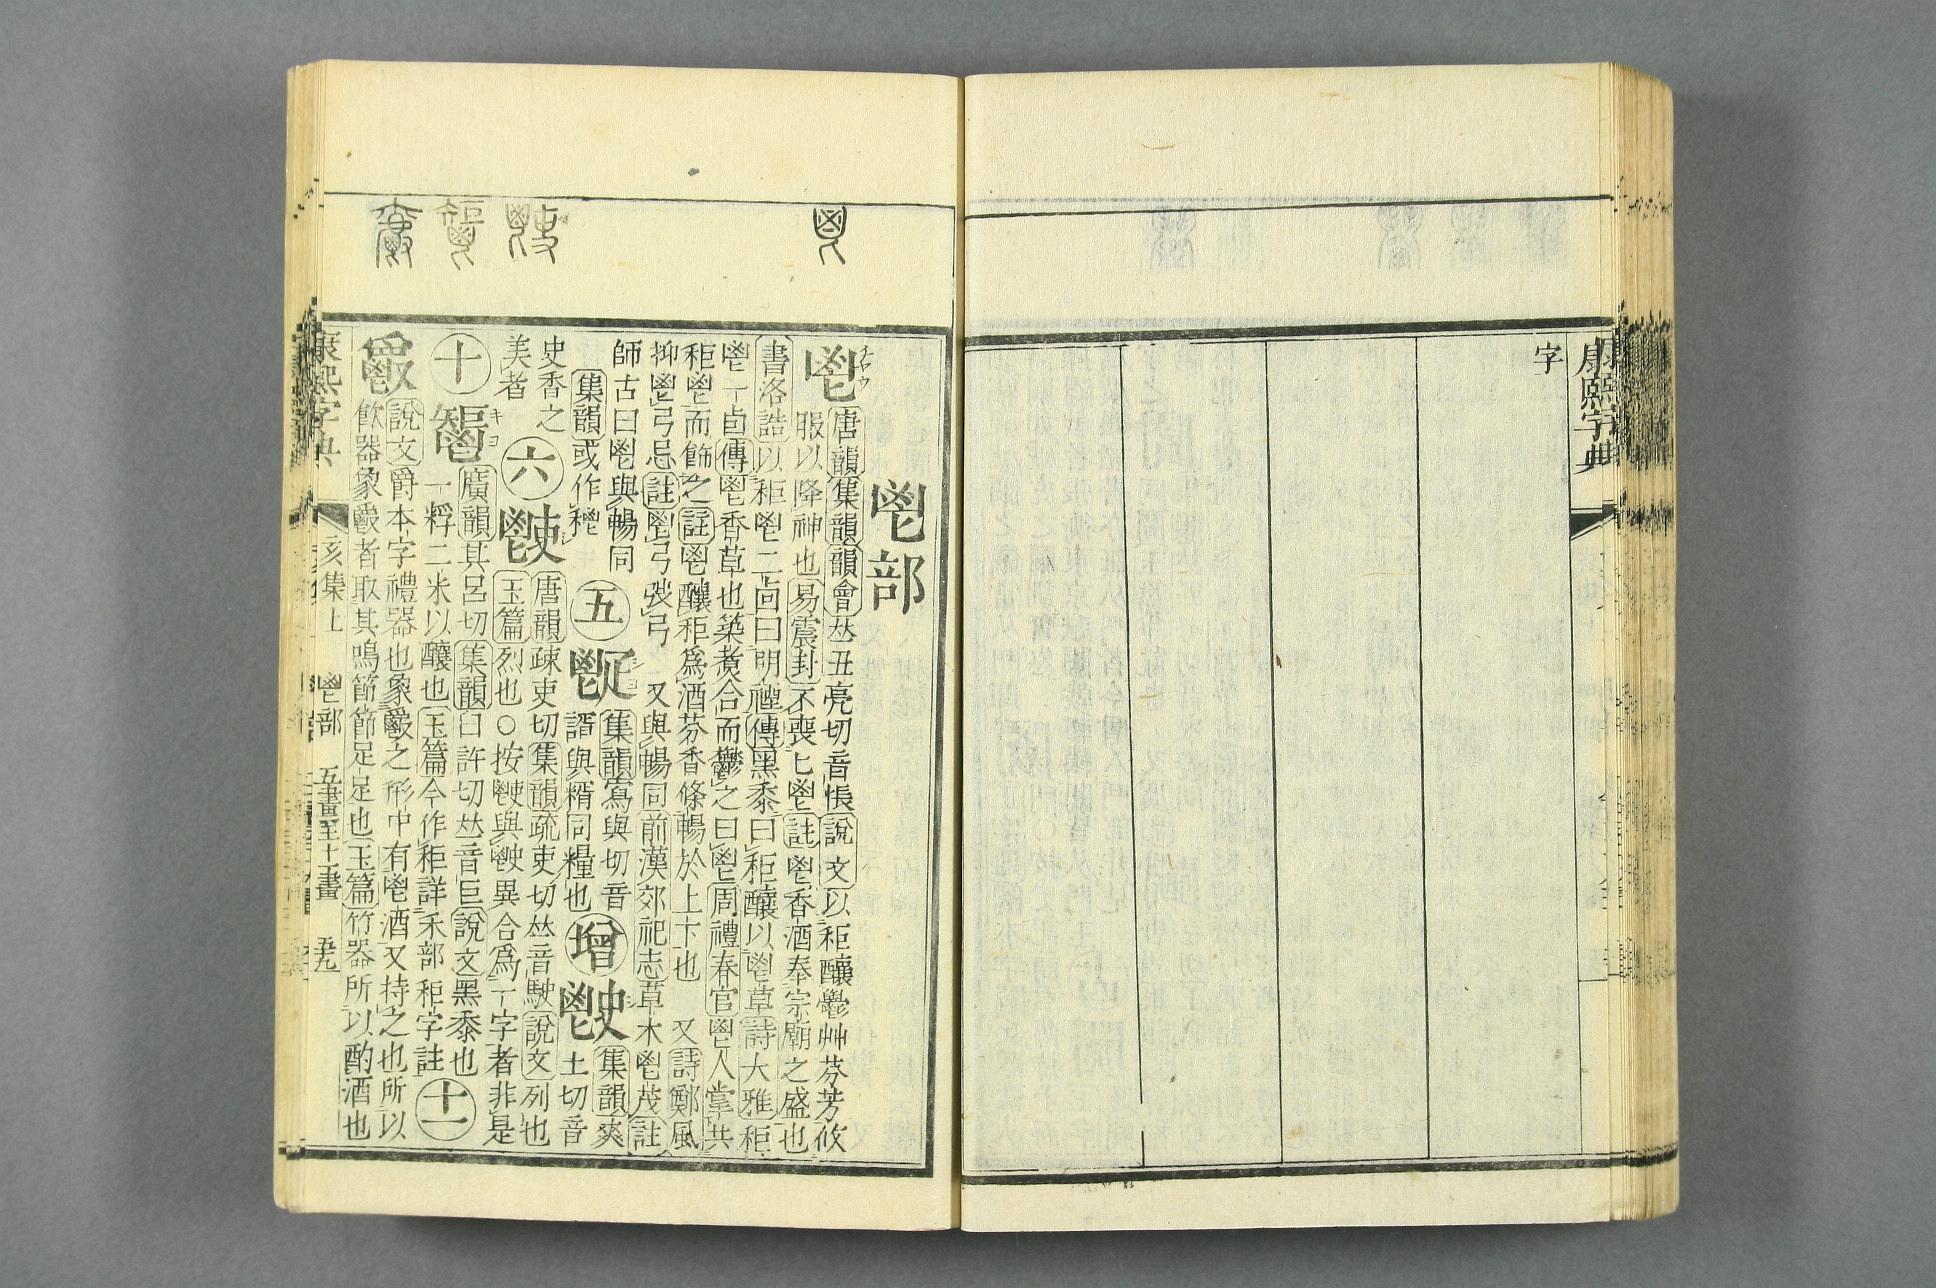 康熙字典
字
鬯部
鬯 唐韻集韻韻會𠀤丑亮切音悵說文以秬釀鬱艸芬芳攸
服以降神也易震封不喪匕鬯註鬯香酒奉宗廟之盛也
書洛誥以秬鬯二卣曰明禋傳黑黍曰秬釀以鬯草詩大雅秬
鬯一卣傳鬯香草也築煮合而鬱之曰鬯周禮春官鬯人掌共
秬鬯而飾之註鬯釀秬爲酒芬香條暢於上下也 又詩鄭風
抑鬯弓忌註鬯弓弢弓 又與暢同前漢郊祀志草木鬯茂註
師古曰鬯與暢同
集韻或作
五
集韻寫與切音
諝與糈同糧也
增
集韻爽
土切音
史香之
美者
六
唐韻疎吏切集韻疏吏切𠀤音駛說文列也
玉篇烈也○按 與 異合爲一字者非是
十
廣韻其呂切集韻臼許切𠀤音巨說文黑黍也
一稃二米以釀也玉篇今作秬詳禾部秬字註
十一
說文爵本字禮器也象爵之形中有鬯酒又持之也所以
飮器象爵者取其鳴節節足足也玉篇竹器所以酌酒也
康熙字典 亥集上 鬯部 五畫至十一畫 五九